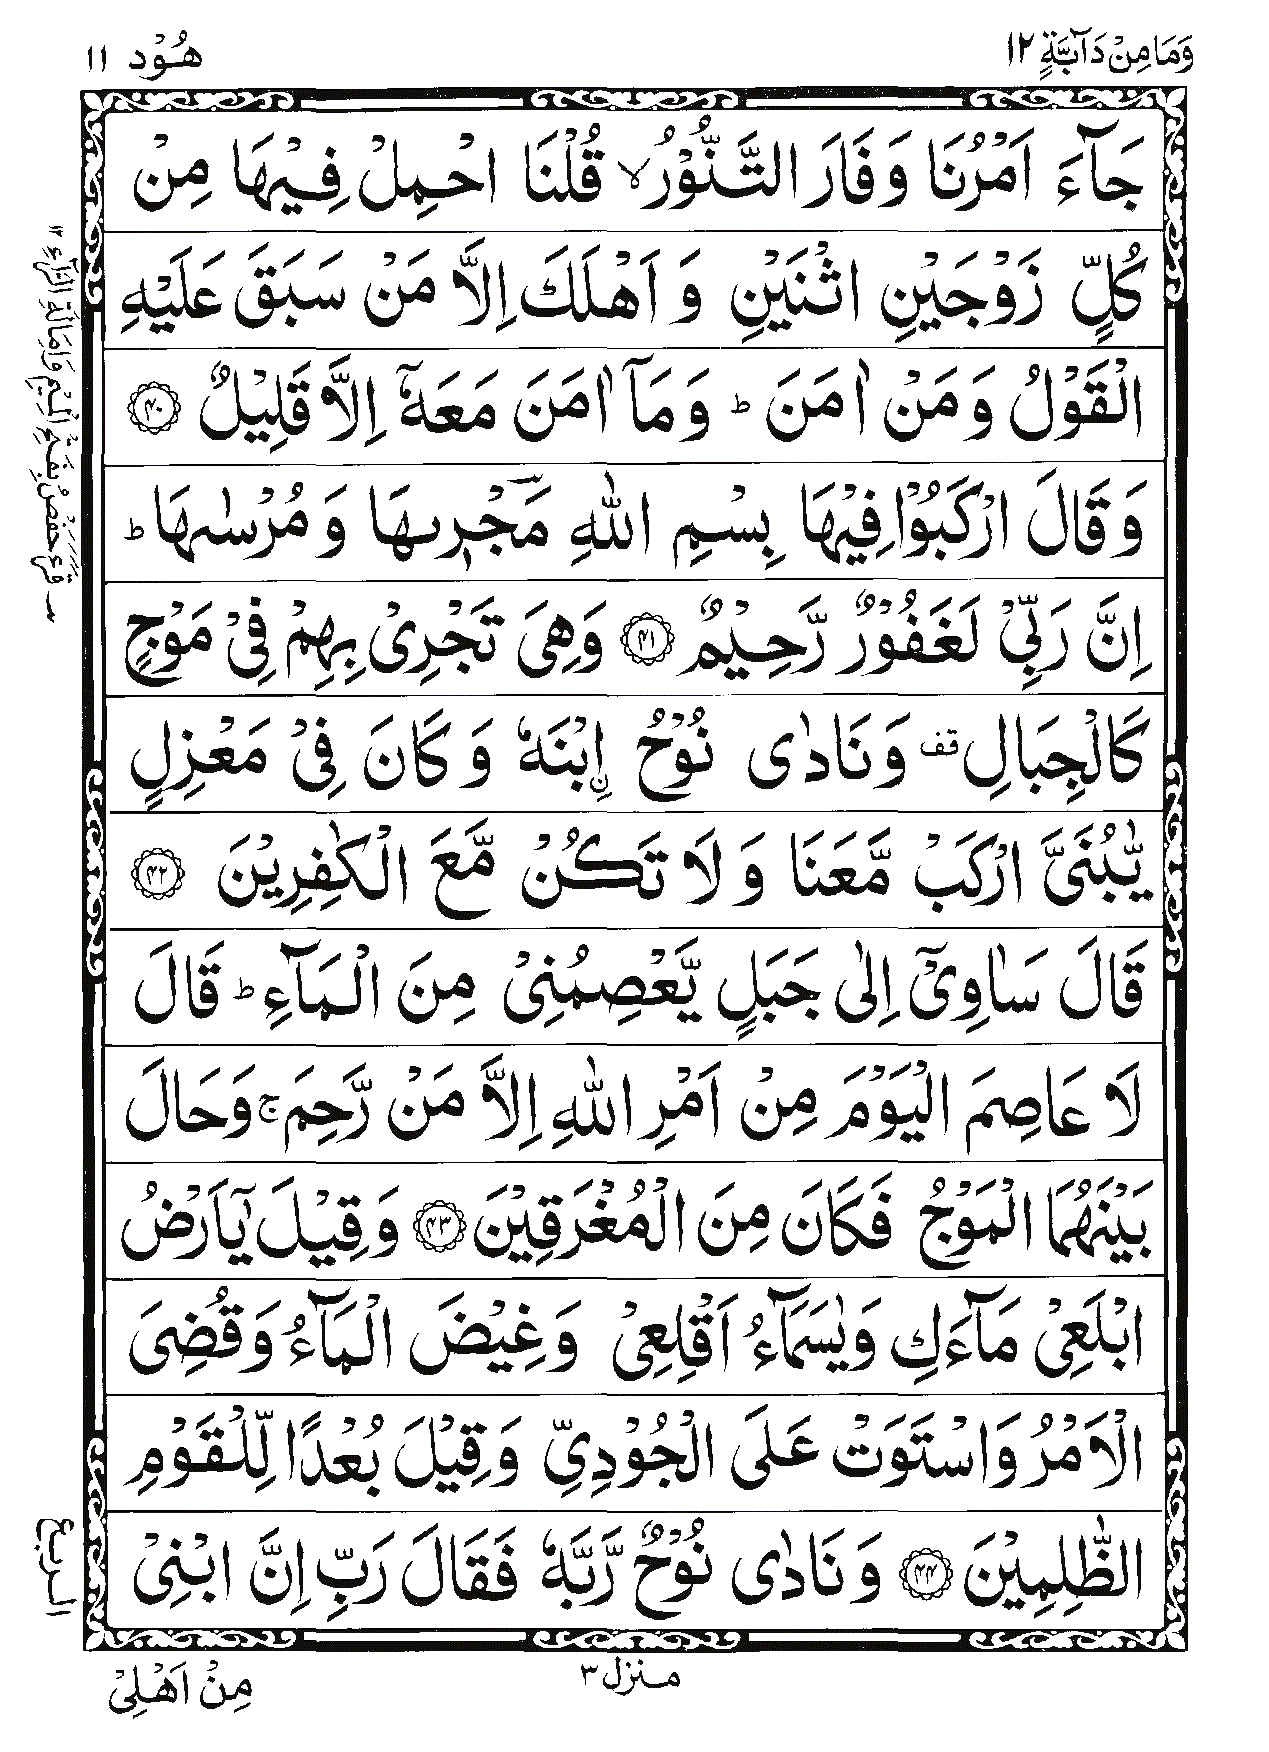 وَمَا مِنْ دَآبَّةٍ ١٢
هُوْد ١١
جَآءَ اَمْرُنَا وَفَارَ التَّنُّوْرُۙ قُلْنَا احْمِلْ فِيْهَا مِنْ
كُلٍّ زَوْجَيْنِ اثْنَيْنِ وَ اَهْلَكَ اِلَّا مَنْ سَبَقَ عَلَيْهِ
الْقَوْلُ وَ مَنْ اٰمَنَ ؕ وَ مَاۤ اٰمَنَ مَعَهٗۤ اِلَّا قَلِيْلٌ ۝٤٠
وَ قَالَ ارْكَبُوْا فِيْهَا بِسْمِ اللّٰهِ مَجْرٖىهَا وَ مُرْسٰىهَا ؕ
اِنَّ رَبِّيْ لَغَفُوْرٌ رَّحِيْمٌ ۝٤١ وَهِيَ تَجْرِيْ بِهِمْ فِيْ مَوْجٍ
كَالْجِبَالِ قف وَنَادٰى نُوْحُ ۨابْنَهٗ وَ كَانَ فِيْ مَعْزِلٍ
يّٰبُنَيَّ ارْكَبْ مَّعَنَا وَ لَا تَكُنْ مَّعَ الْكٰفِرِيْنَ ۝٤٢
قَالَ سَاٰوِيْۤ اِلٰى جَبَلٍ يَّعْصِمُنِيْ مِنَ الْمَآءِ ؕ قَالَ
لَا عَاصِمَ الْيَوْمَ مِنْ اَمْرِ اللّٰهِ اِلَّا مَنْ رَّحِمَ ۚ وَحَالَ
بَيْنَهُمَا الْمَوْجُ فَكَانَ مِنَ الْمُغْرَقِيْنَ ۝٤٣ وَ قِيْلَ يٰۤاَرْضُ
ابْلَعِيْ مَآءَكِ وَيٰسَمَآءُ اَقْلِعِيْ وَغِيْضَ الْمَآءُ وَقُضِيَ
الْاَمْرُ وَاسْتَوَتْ عَلَى الْجُوْدِيِّ وَقِيْلَ بُعْدًا لِّلْقَوْمِ
الظّٰلِمِيْنَ ۝٤٤ وَ نَادٰى نُوْحٌ رَّبَّهٗ فَقَالَ رَبِّ اِنَّ ابْنِيْ
منزل ٣
مِنْ اَهْلِيْ
قرء حفص بفتح الميم وامالة الراء ١٢
الربع